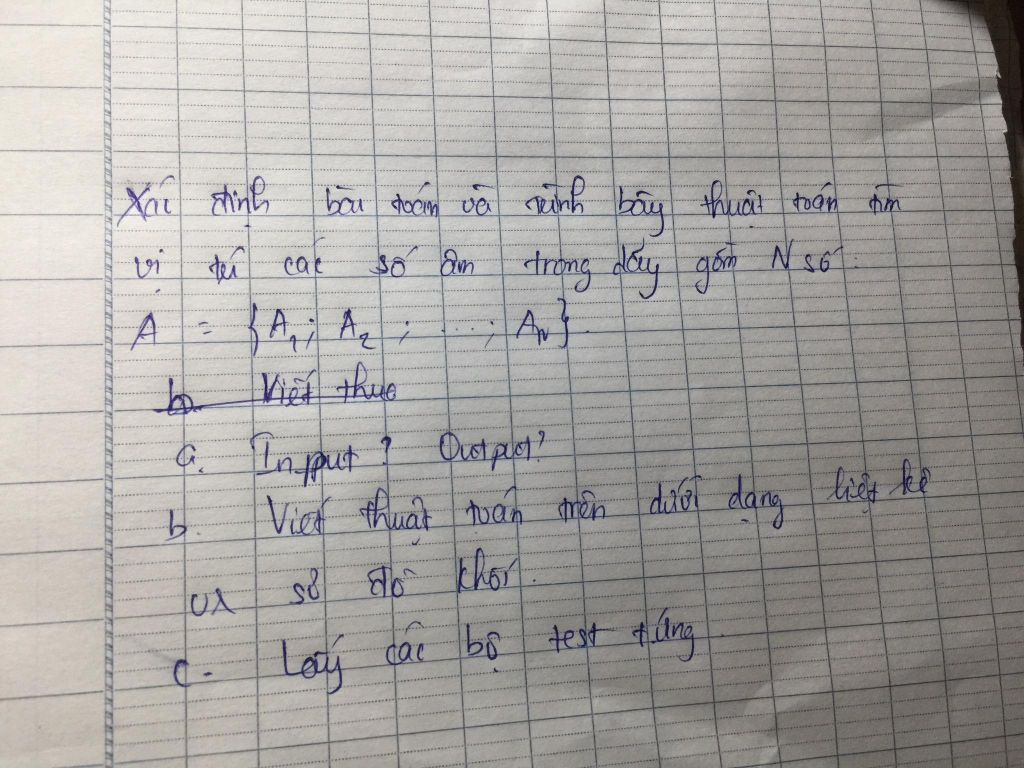 Xác định bài toán và trình bày thuật toán tìm
vị trí các số âm trong dãy gồm N số:
A = {A1; A2; ...; AN}.
b. Viết thuo
a. Input? Output?
b. Viết thuật toán trên dưới dạng liệt kê
và sơ đồ khối.
c. Lấy các bộ test từng.